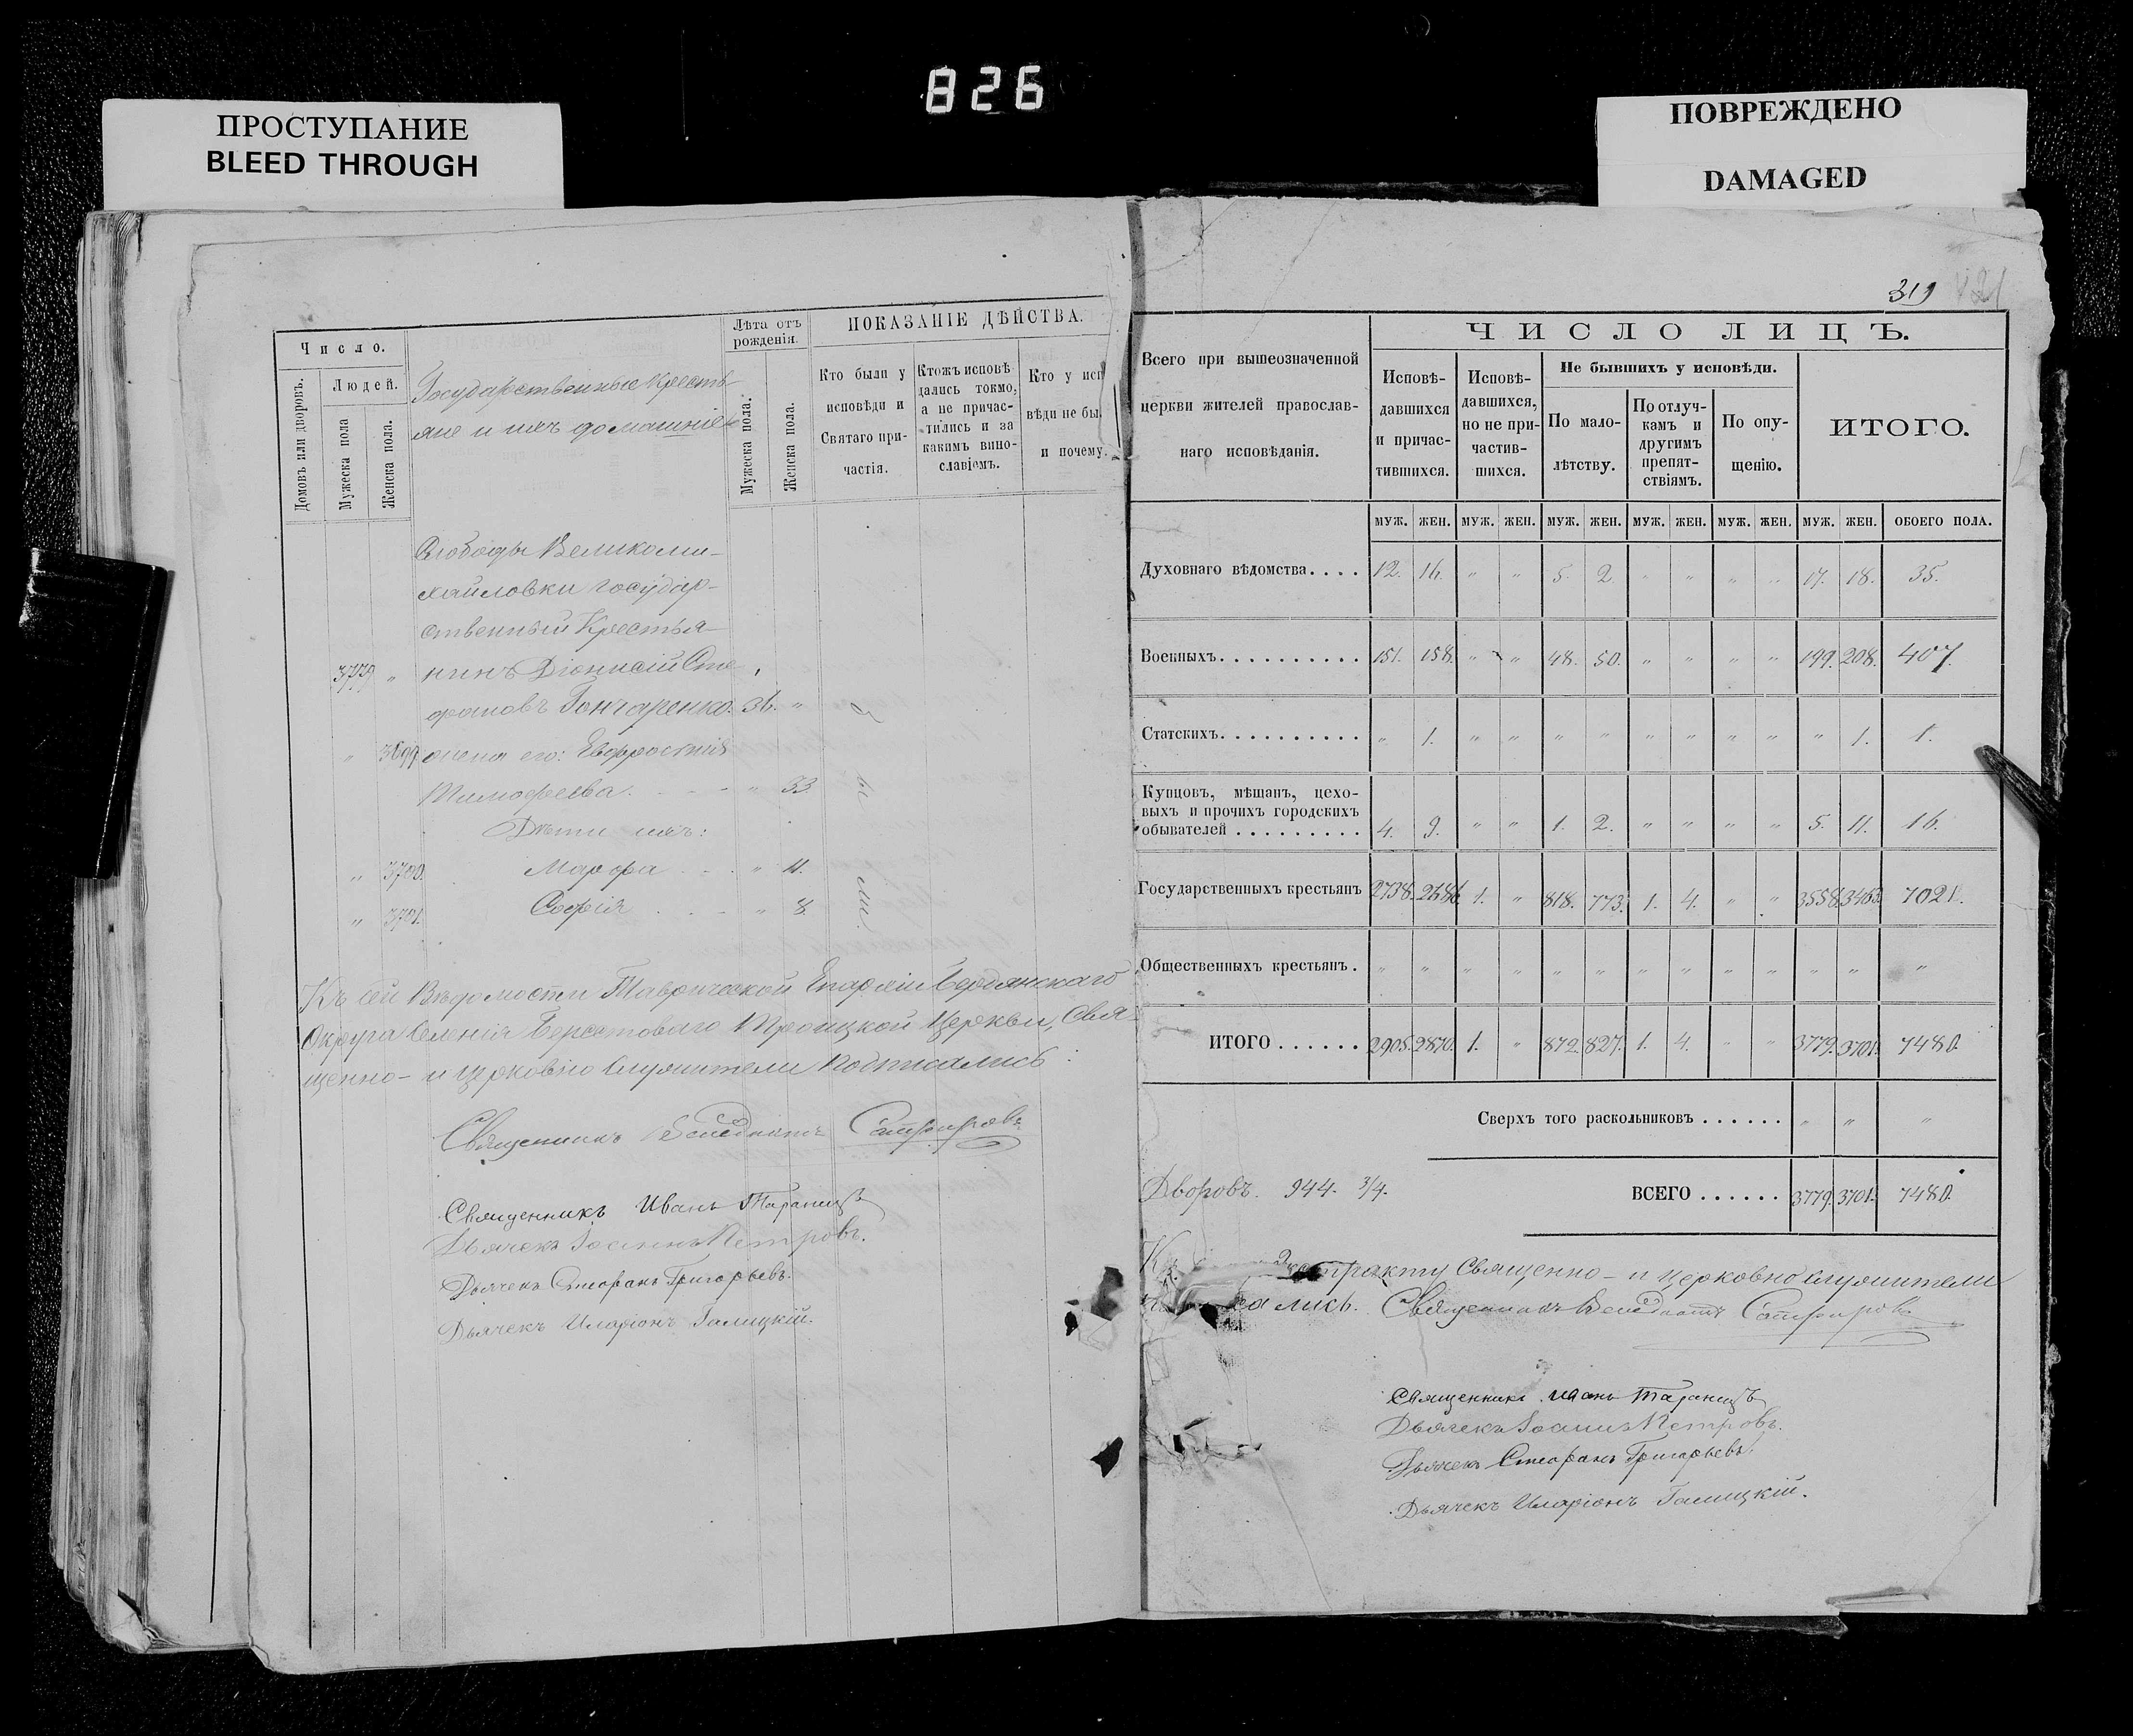 826
ПРОСТУПАНИЕ
BLEED THROUGH
ПОВРЕЖДЕНО
DAMAGED
Число.
Домовъ или дворовъ.
Людей.
Мужеска пола
Женска пола.
Государственные Кресть-
яне и ихъ домашніе
Лѣта отъ
рожденія.
Мужеска пола.
Женска пола.
ПОКАЗАНІЕ ДѢЙСТВА.
Кто были у
исповѣди и
Святаго при-
частія.
Ктожъ исповѣ
дались токмо,
а не причас-
тились и за
какимъ вино-
славіемъ.
Кто у исп
вѣди не бы
и почему.
Слободы Великоми-
хайловки государ-
ственный Крестья-
3779 " нинъ Діонисій Сте
фановъ Гончаренко. 36. "
" 3699 жена его: Евфросинія
Тимофеева. " 33.
Дѣти ихъ:
" 3700. Марфа " 11.
" 3701. Софія " 8.
бы
ли.
Къ сей Вѣдомости Таврической Епархіи Бердянскаго
Округа селенія Берестоваго Троицкой Церкви, Свя-
щенно- и церковно служители подписались:
Священникъ Венедиктъ Сапфировъ
Священникъ Иванъ Таранецъ
Дьячекъ Іоаннъ Петровъ.
Дьячекъ Стефанъ Григорьевъ.
Дьячекъ Иларіонъ Галицкій.
319
Всего при вышеозначенной
церкви жителей православ-
наго исповѣданія.
ЧИСЛО ЛИЦЪ.
Исповѣ-
давшихся
и причас-
тившихся.
Исповѣ-
давшихся,
но не при-
частив-
шихся.
Не бывшихъ у исповѣди.
По мало-
лѣтству.
По отлуч-
камъ и
другимъ
препят-
ствіямъ.
По опу-
щенію.
ИТОГО.
МУЖ. ЖЕН. МУЖ. ЖЕН. МУЖ. ЖЕН. МУЖ. ЖЕН. МУЖ. ЖЕН. МУЖ. ЖЕН. ОБОЕГО ПОЛА.
Духовнаго вѣдомства.... 12. 16. " " 5. 2. " " " " 17. 18. 35.
Военныхъ.......... 151. 158. " " 48. 50. " " " " 199. 208. 407.
Статскихъ.......... " 1. " " " " " " " " " 1. 1.
Купцовъ, мѣщанъ, цехо-
выхъ и прочихъ городскихъ
обывателей ......... 4. 9. " " 1. 2. " " " " 5. 11. 16.
Государственныхъ крестьянъ 2738. 2686. 1. " 818. 773. 1. 4. " " 3558. 3463. 7021.
Общественныхъ крестьянъ. " " " " " " " " " " " " "
ИТОГО ...... 2905. 2870. 1. " 872. 827. 1. 4. " " 3779. 3701. 7480.
Сверхъ того раскольниковъ ...... " " "
Дворовъ. 944. 3/4.
ВСЕГО ...... 3779. 3701. 7480.
Къ Экстракту Священно- и церковно служители
лись. Священникъ Венедиктъ Сапфировъ
Священникъ Иванъ Таранецъ
Дьячекъ Іоаннъ Петровъ.
Дьячекъ Стефанъ Григорьевъ.
Дьячекъ Иларіонъ Галицкій.